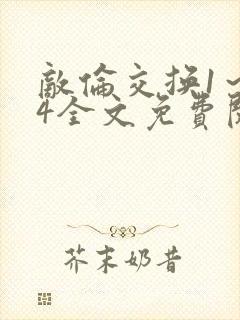 敵倫交换1～
4全文免費閱
芥末奶昔